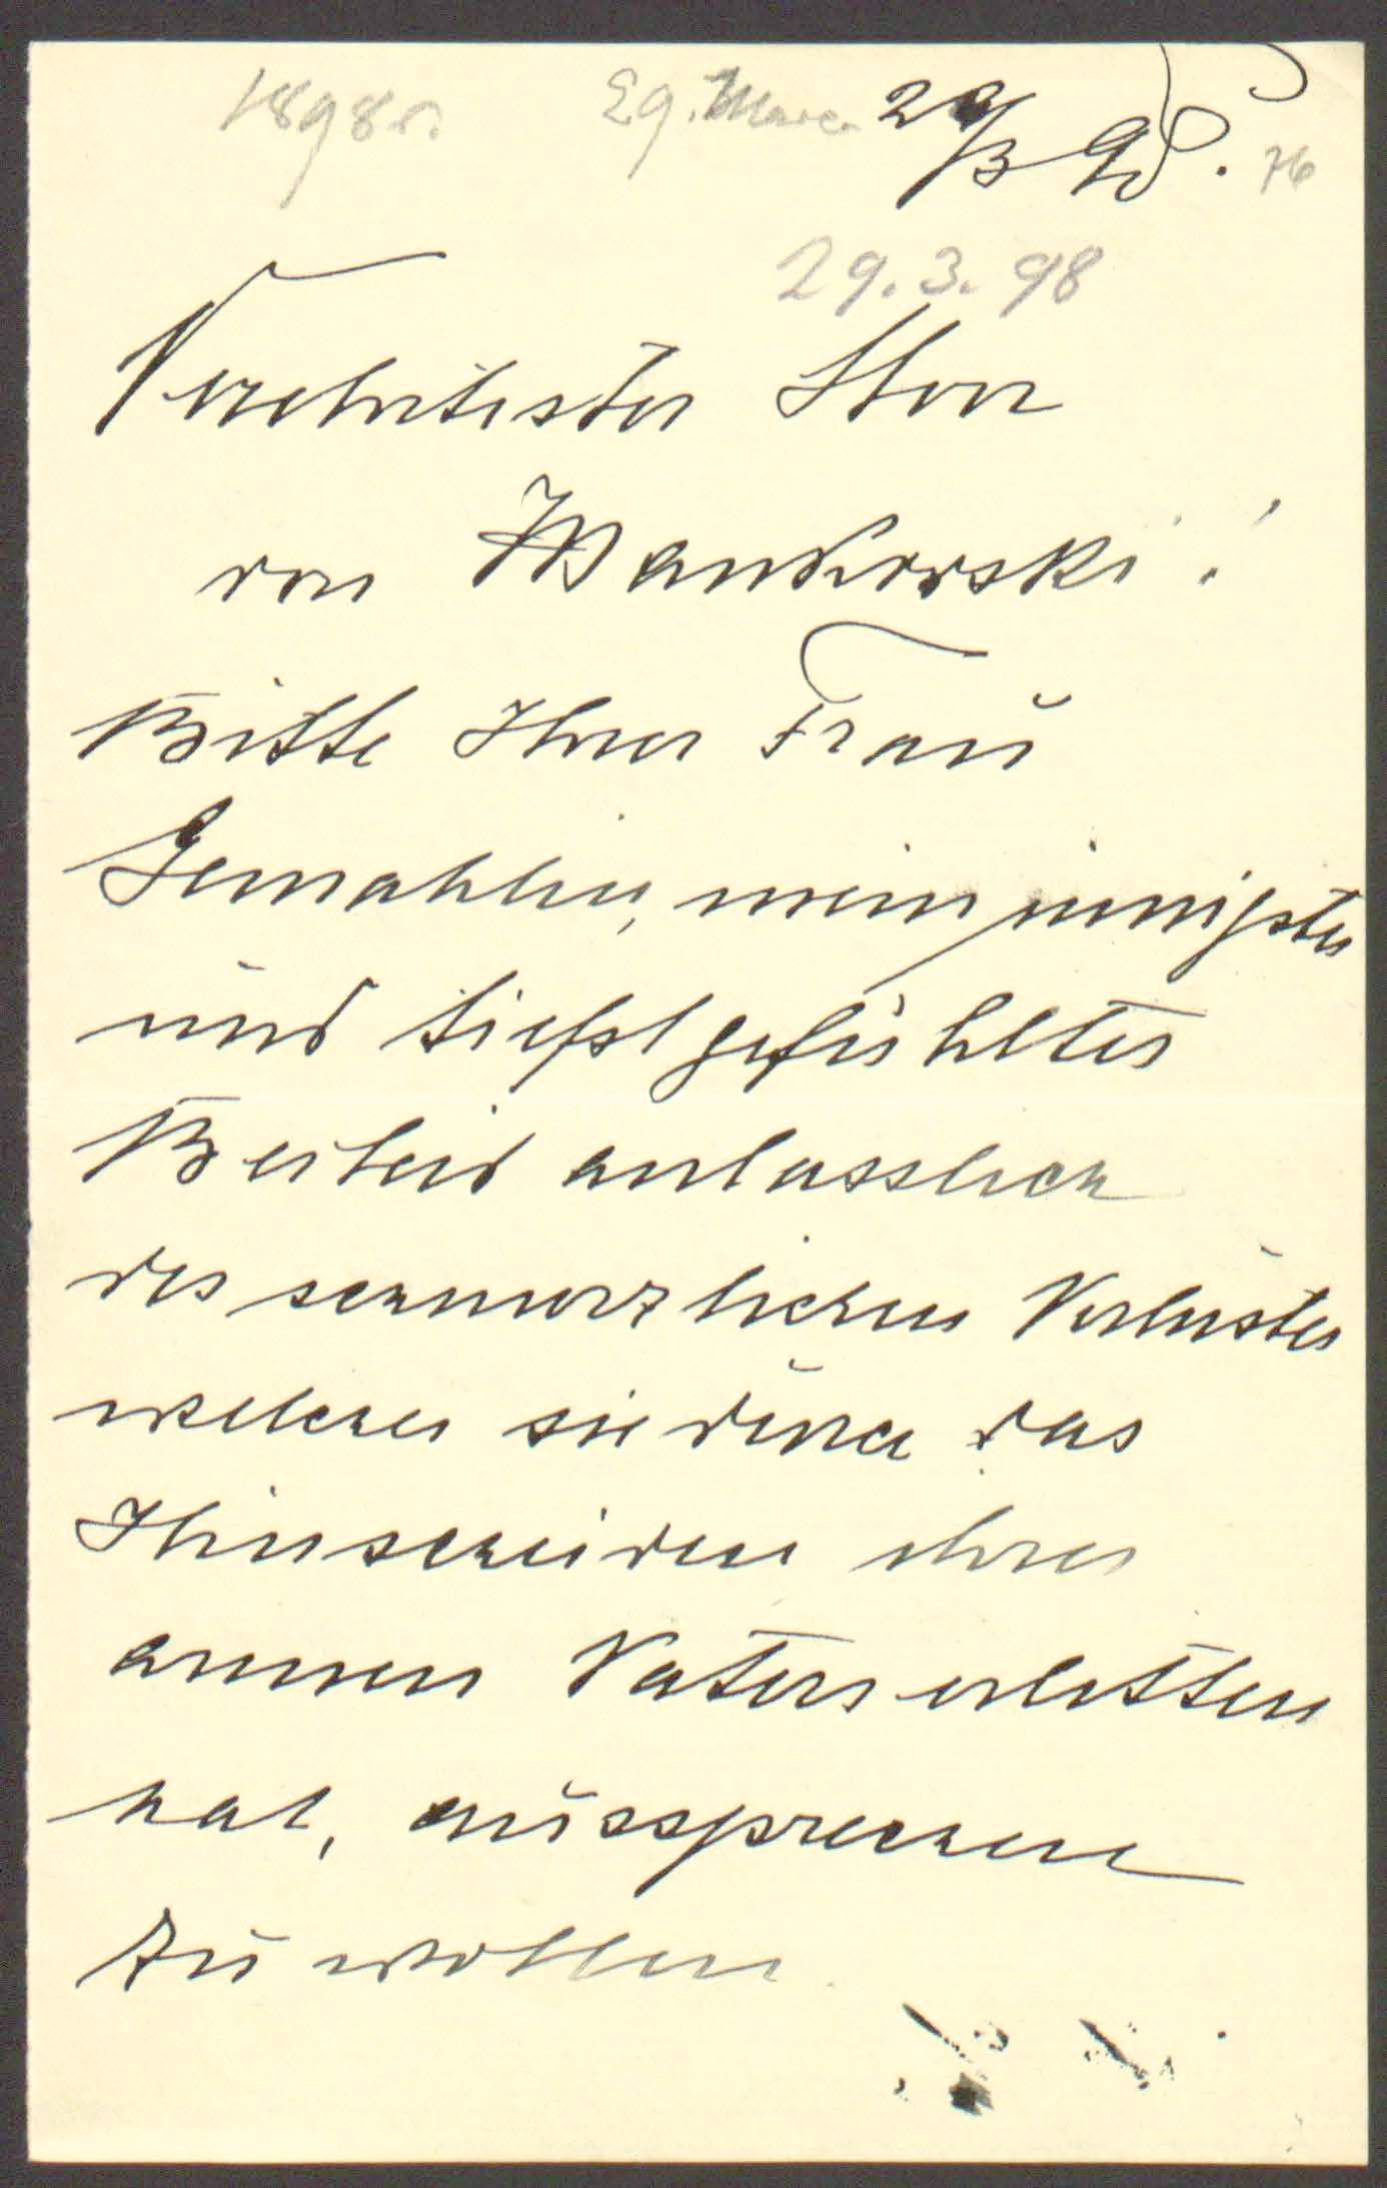 1898 r. 29. Marca 29/3 98. 76
29. 3. 98
Verehrtester Herr
von Mankowski!
Bitte Ihrer Frau
Gemahlin, mein innigstes
und tiefstgefühltes
Beileid anlasslich
des schmerzlichen Verlustes
welchen sie durch das
Hinscheiden ihres
armen Vaters erlitten
hat, aussprechen
zu wollen.